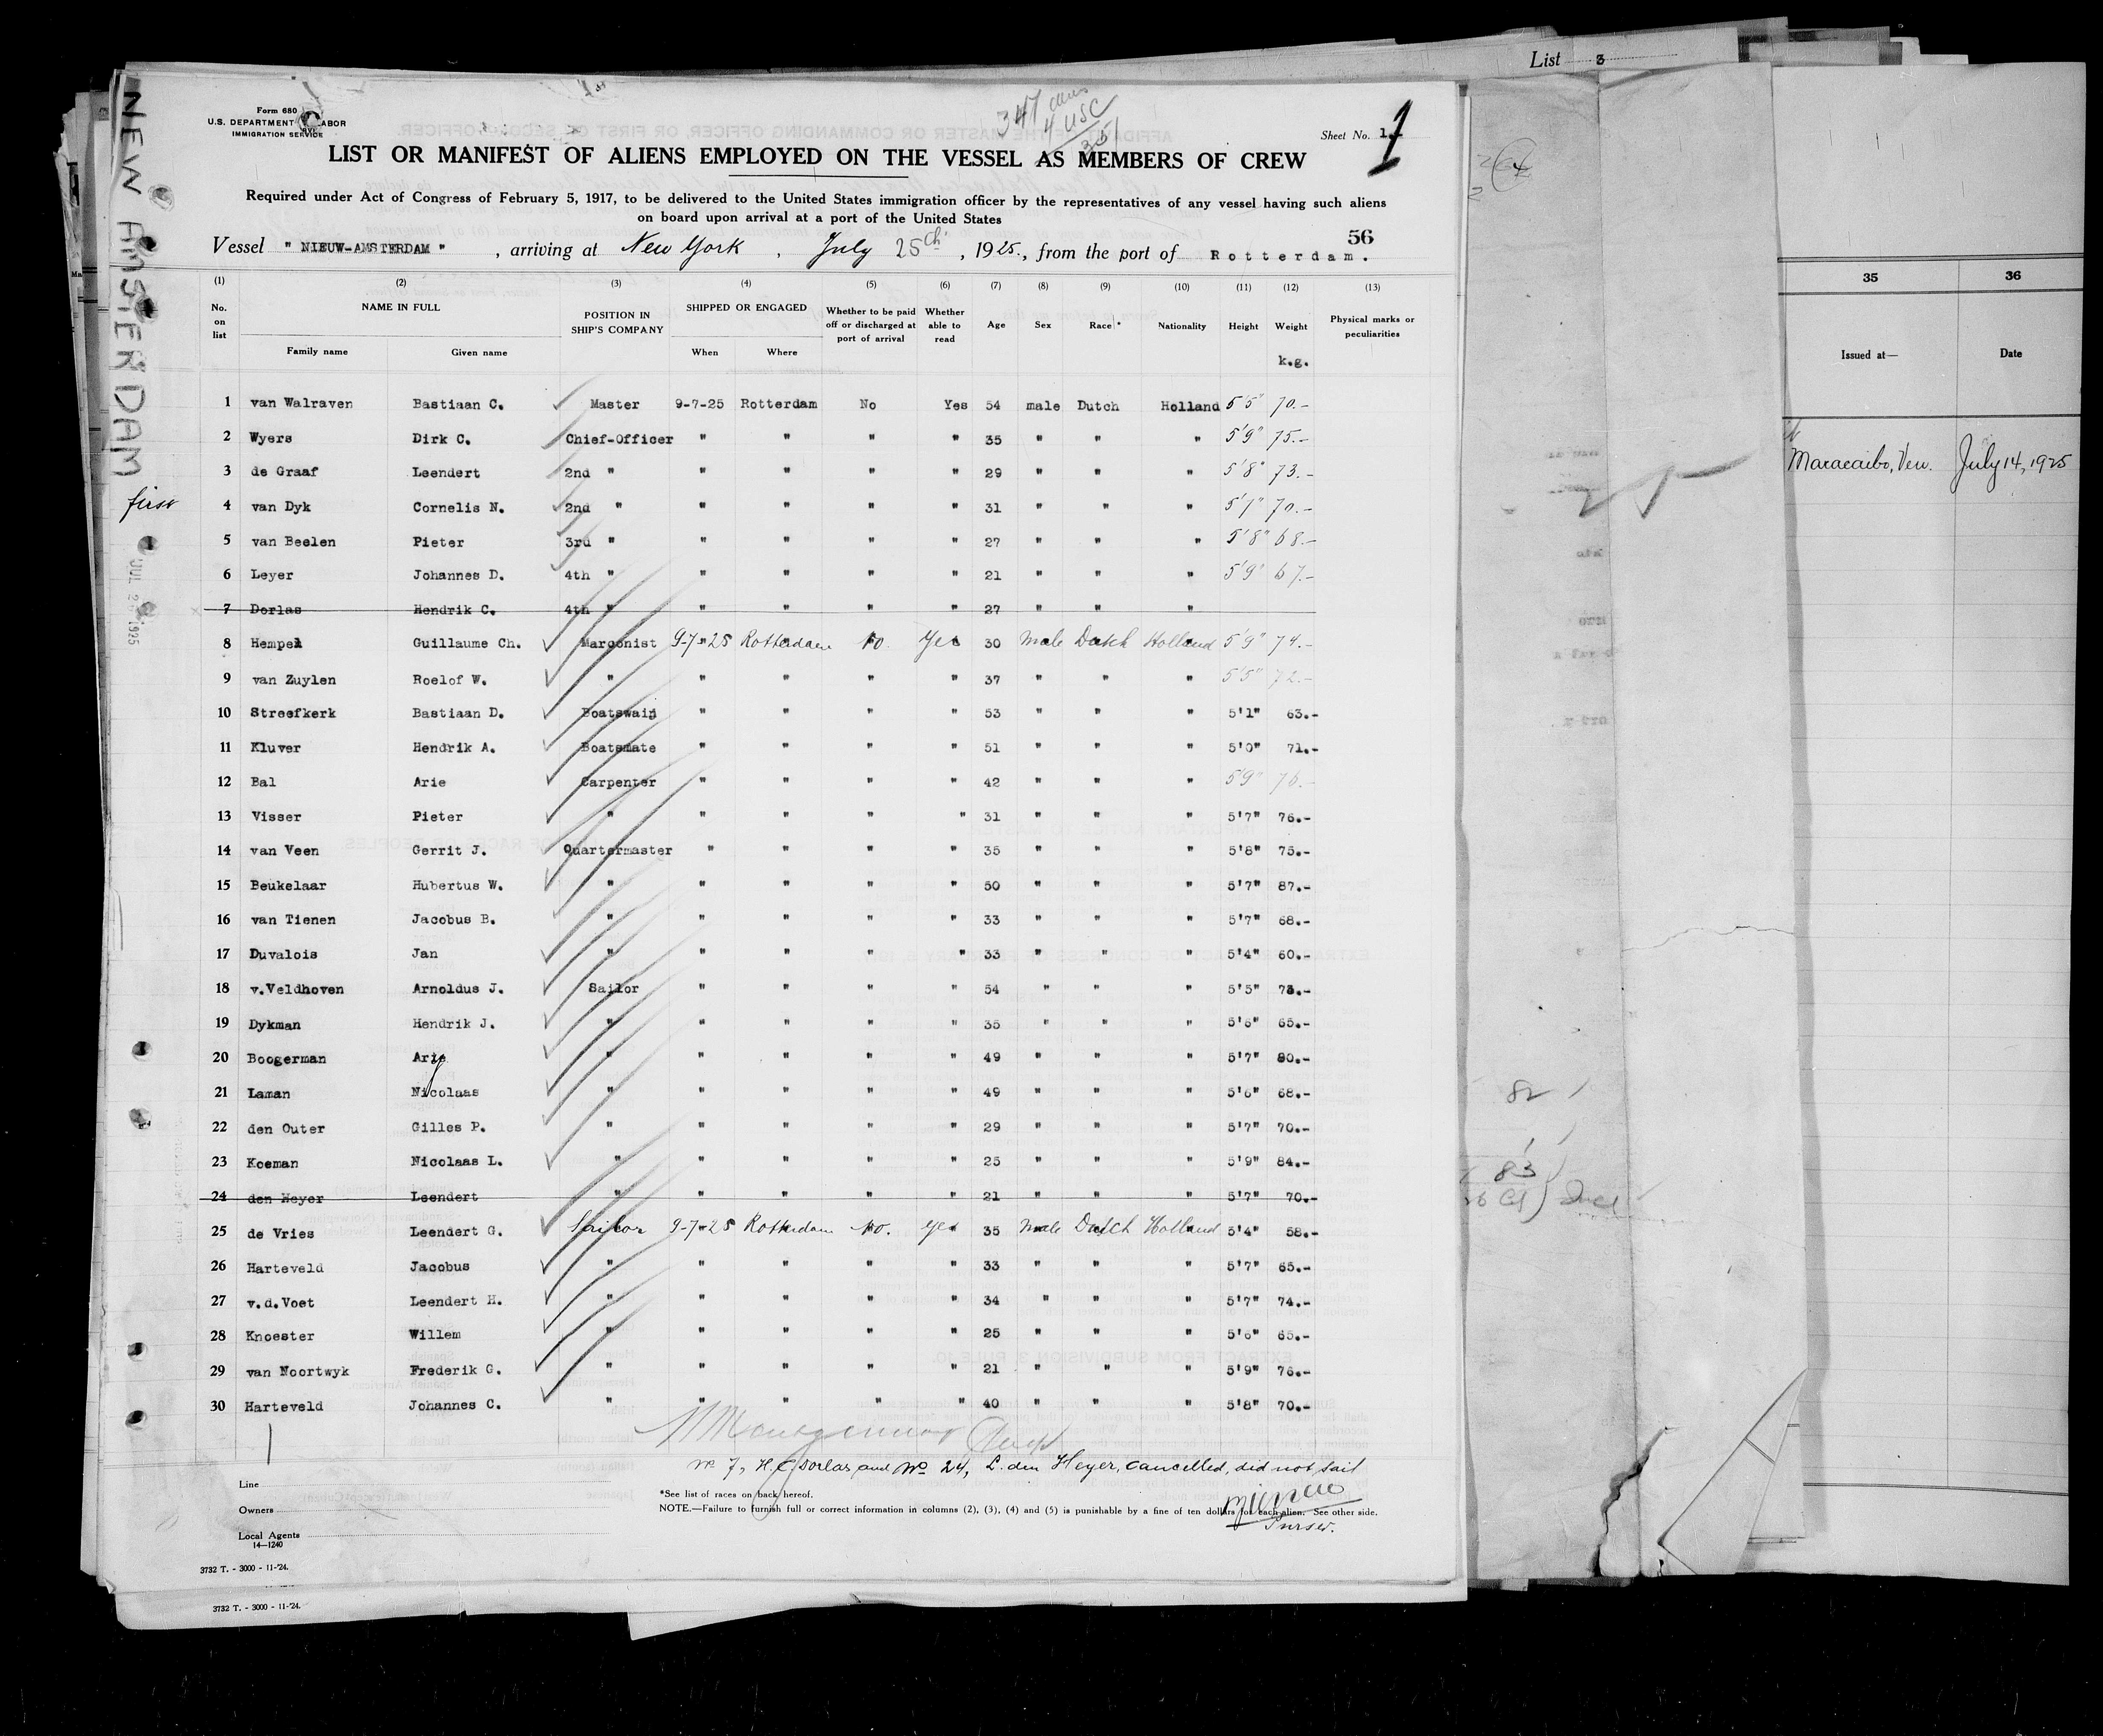 List 3
NEW AMSTERDAM
Form 680
U.S. DEPARTMENT LABOR
IMMIGRATION SERVICE
347
4 USC
351
Sheet No. 1
LIST OR MANIFEST OF ALIENS EMPLOYED ON THE VESSEL AS MEMBERS OF CREW
Required under Act of Congress of February 5, 1917, to be delivered to the United States immigration officer by the representatives of any vessel having such aliens
on board upon arrival at a port of the United States
56
Vessel " NIEUW-AMSTERDAM " , arriving at New York , July 25th , 1925, from the port of Rotterdam.
(1) (2) (3) (4) (5) (6) (7) (8) (9) (10) (11) (12) (13)
No. on list NAME IN FULL Family name Given name POSITION IN SHIP'S COMPANY SHIPPED OR ENGAGED When Where Whether to be paid off or discharged at port of arrival Whether able to read Age Sex Race * Nationality Height Weight k.g. Physical marks or peculiarities
1 van Walraven Bastiaan C. Master 9-7-25 Rotterdam No Yes 54 male Dutch Holland 5'5" 70.-
2 Wyers Dirk C. Chief-Officer " " " " 35 " " " 5'9" 75.-
3 de Graaf Leendert 2nd " " " " " 29 " " " 5'8" 73.-
first 4 van Dyk Cornelis N. 2nd " " " " " 31 " " " 5'7" 70.-
5 van Beelen Pieter 3rd " " " " " 27 " " " 5'8" 68.-
6 Leyer Johannes D. 4th " " " " " 21 " " " 5'9" 67.-
7 Dorlas Hendrik C. 4th " " " " " 27 " " "
8 Hempel Guillaume Ch. Marconist 9-7-25 Rotterdam No. Yes 30 Male Dutch Holland 5'9" 74.-
9 van Zuylen Roelof W. " " " " " 37 " " " 5'5" 72.-
10 Streefkerk Bastiaan D. Boatswain " " " " 53 " " " 5'1" 63.-
11 Kluver Hendrik A. Boatsmate " " " " 51 " " " 5'0" 71.-
12 Bal Arie Carpenter " " " " 42 " " " 5'9" 76.-
13 Visser Pieter " " " " " 31 " " " 5'7" 76.-
14 van Veen Gerrit J. Quartermaster " " " " 35 " " " 5'8" 75.-
15 Beukelaar Hubertus W. " " " " " 50 " " " 5'7" 87.-
16 van Tienen Jacobus B. " " " " " 33 " " " 5'7" 68.-
17 Duvalois Jan " " " " " 33 " " " 5'4" 60.-
18 v.Veldhoven Arnoldus J. Sailor " " " " 54 " " " 5'5" 73.-
19 Dykman Hendrik J. " " " " " 35 " " " 5'6" 65.-
20 Boogerman Ary " " " " " 49 " " " 5'7" 80.-
21 Laman Nicolaas " " " " " 49 " " " 5'6" 68.-
22 den Outer Gilles P. " " " " " 29 " " " 5'7" 70.-
23 Koeman Nicolaas L. " " " " " 25 " " " 5'9" 84.-
24 den Heyer Leendert " " " " " 21 " " " 5'7" 70.-
25 de Vries Leendert G. Sailor 9-7-25 Rotterdam No. Yes 35 Male Dutch Holland 5'4" 58.-
26 Harteveld Jacobus " " " " " 33 " " " 5'7" 65.-
27 v.d.Voet Leendert H. " " " " " 34 " " " 5'7" 74.-
28 Knoester Willem " " " " " 25 " " " 5'6" 65.-
29 van Noortwyk Frederik G. " " " " " 21 " " " 5'9" 76.-
30 Harteveld Johannes C. " " " " " 40 " " " 5'8" 70.-
No 7, H.C. Dorlas and No 24, L. den Heyer, cancelled, did not sail
Purser.
Line
Owners
Local Agents
14-1240
*See list of races on back hereof.
NOTE.—Failure to furnish full or correct information in columns (2), (3), (4) and (5) is punishable by a fine of ten dollars for each alien. See other side.
3732 T. - 3000 - 11-'24.
3732 T. - 3000 - 11-'24.
JUL 2 1925
82
83
35 36
Issued at— Date
Maracaibo, Ven. July 14, 1925